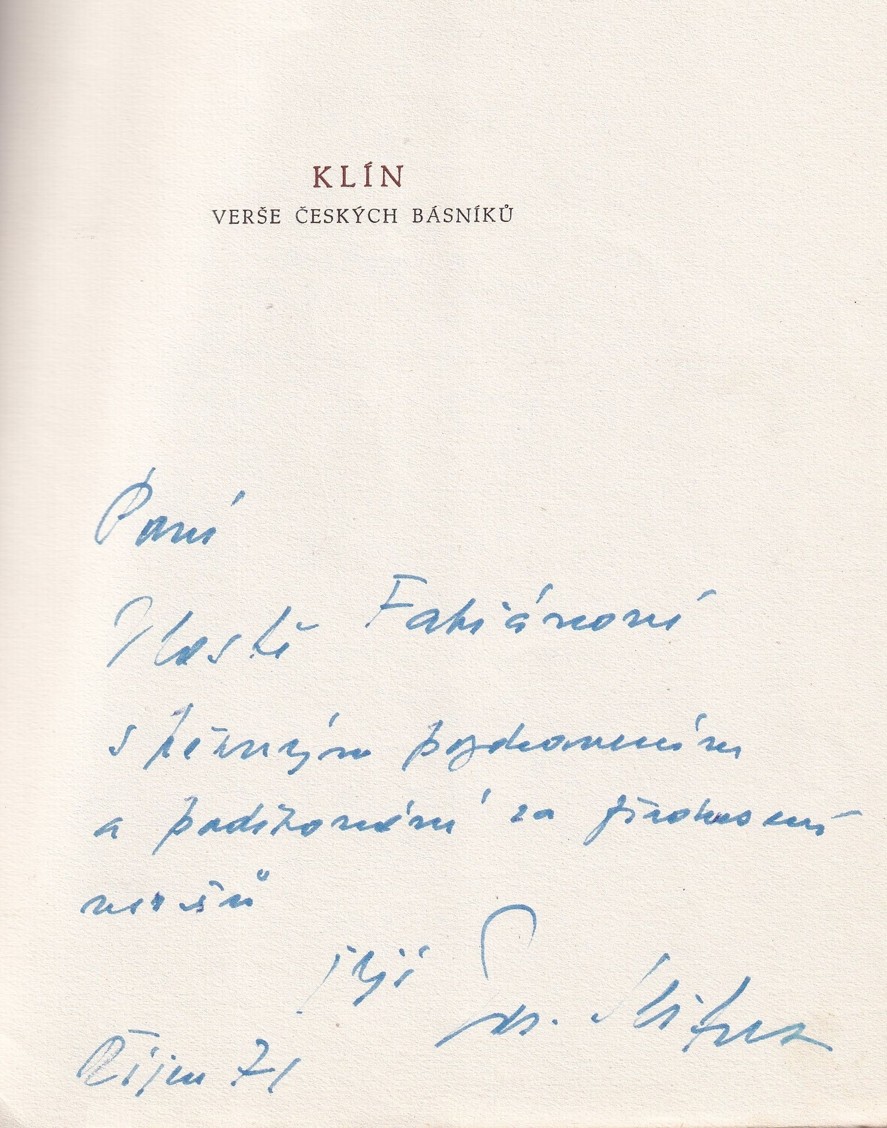 KLÍN
VERŠE ČESKÝCH BÁSNÍKŮ
Paní
Vlastě Fabiánové
s pěkným pozdravením
a poděkování za přednesení
veršů
Říjen 71